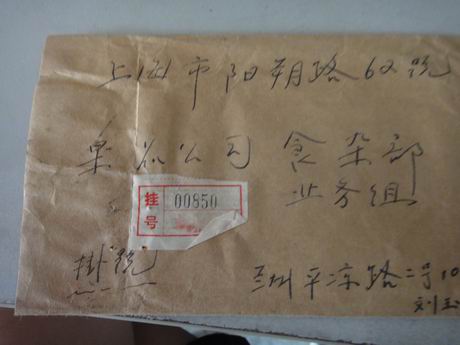 上海市阳朔路62號
果品公司 食杂部
业务组
挂号
00850
掛號
兰州平凉路二号10
刘玉